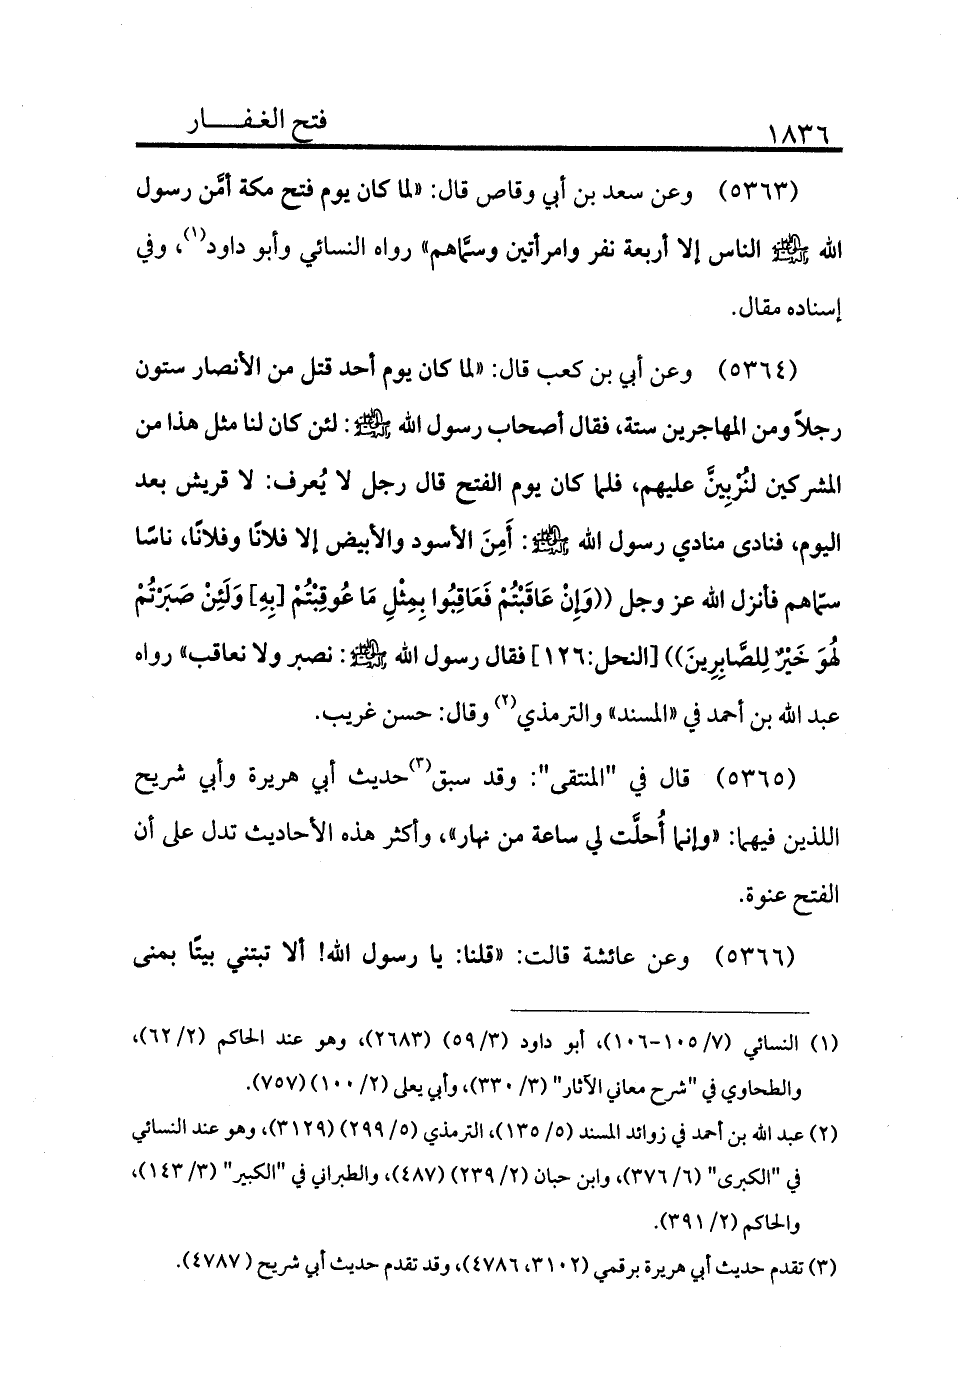 ١٨٣٦
فتح الغفـــــار
(٥٣٦٣) وعن سعد بن أبي وقاص قال: «لما كان يوم فتح مكة أمَّن رسول
الله ﷺ الناس إلا أربعة نفر وامرأتين وسمَّاهم» رواه النسائي وأبو داود(١)، وفي
إسناده مقال.
(٥٣٦٤) وعن أبي بن كعب قال: «لما كان يوم أحد قتل من الأنصار ستون
رجلاً ومن المهاجرين ستة، فقال أصحاب رسول الله ﷺ: لئن كان لنا مثل هذا من
المشركين لنُرْبِينَّ عليهم، فلما كان يوم الفتح قال رجل لا يُعرف: لا قريش بعد
اليوم، فنادى منادي رسول الله ﷺ: أَمِنَ الأسود والأبيض إلا فلانًا وفلانًا، ناسًا
سمّاهم فأنزل الله عز وجل ((وَإِنْ عَاقَبْتُمْ فَعَاقِبُوا بِمِثْلِ مَا عُوقِبْتُمْ [بِهِ] وَلَئِنْ صَبَرْتُمْ
لَهُوَ خَيْرٌ لِلصَّابِرِينَ)) [النحل:١٢٦] فقال رسول الله ﷺ: نصبر ولا نعاقب» رواه
عبد الله بن أحمد في «المسند» والترمذي(٢) وقال: حسن غريب.
(٥٣٦٥) قال في "المنتقى": وقد سبق(٣)حديث أبي هريرة وأبي شريح
اللذين فيهما: «وإنما أُحلَّت لي ساعة من نهار»، وأكثر هذه الأحاديث تدل على أن
الفتح عنوة.
(٥٣٦٦) وعن عائشة قالت: «قلنا: يا رسول الله! ألا تبتني بيتًا بمنى
(١) النسائي (٧/ ١٠٥-١٠٦)، أبو داود (٣/ ٥٩) (٢٦٨٣)، وهو عند الحاكم (٢/ ٦٢)،
والطحاوي في "شرح معاني الآثار" (٣/ ٣٣٠)، وأبي يعلى (٢/ ١٠٠) (٧٥٧).
(٢) عبد الله بن أحمد في زوائد المسند (٥/ ١٣٥)، الترمذي (٥/ ٢٩٩) (٣١٢٩)، وهو عند النسائي
في "الكبرى" (٦/ ٣٧٦)، وابن حبان (٢/ ٢٣٩) (٤٨٧)، والطبراني في "الكبير" (٣/ ١٤٣)،
والحاكم (٢/ ٣٩١).
(٣) تقدم حديث أبي هريرة برقمي (٣١٠٢، ٤٧٨٦)، وقد تقدم حديث أبي شريح (٤٧٨٧).